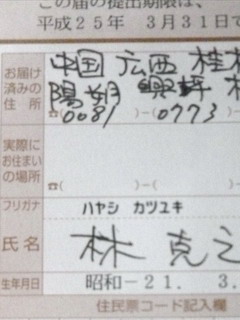 この届の提出期限は、
平成25年 3月31日で
お届け
済みの
住所
中国 広西 桂林
陽朔 興坪
☎(0081)-(0773)-
実際に
お住まい
の場所
☎( )-( )-
フリガナ
ハヤシ カツユキ
氏名
林 克之
生年月日
昭和-21. 3.
住民票コード記入欄